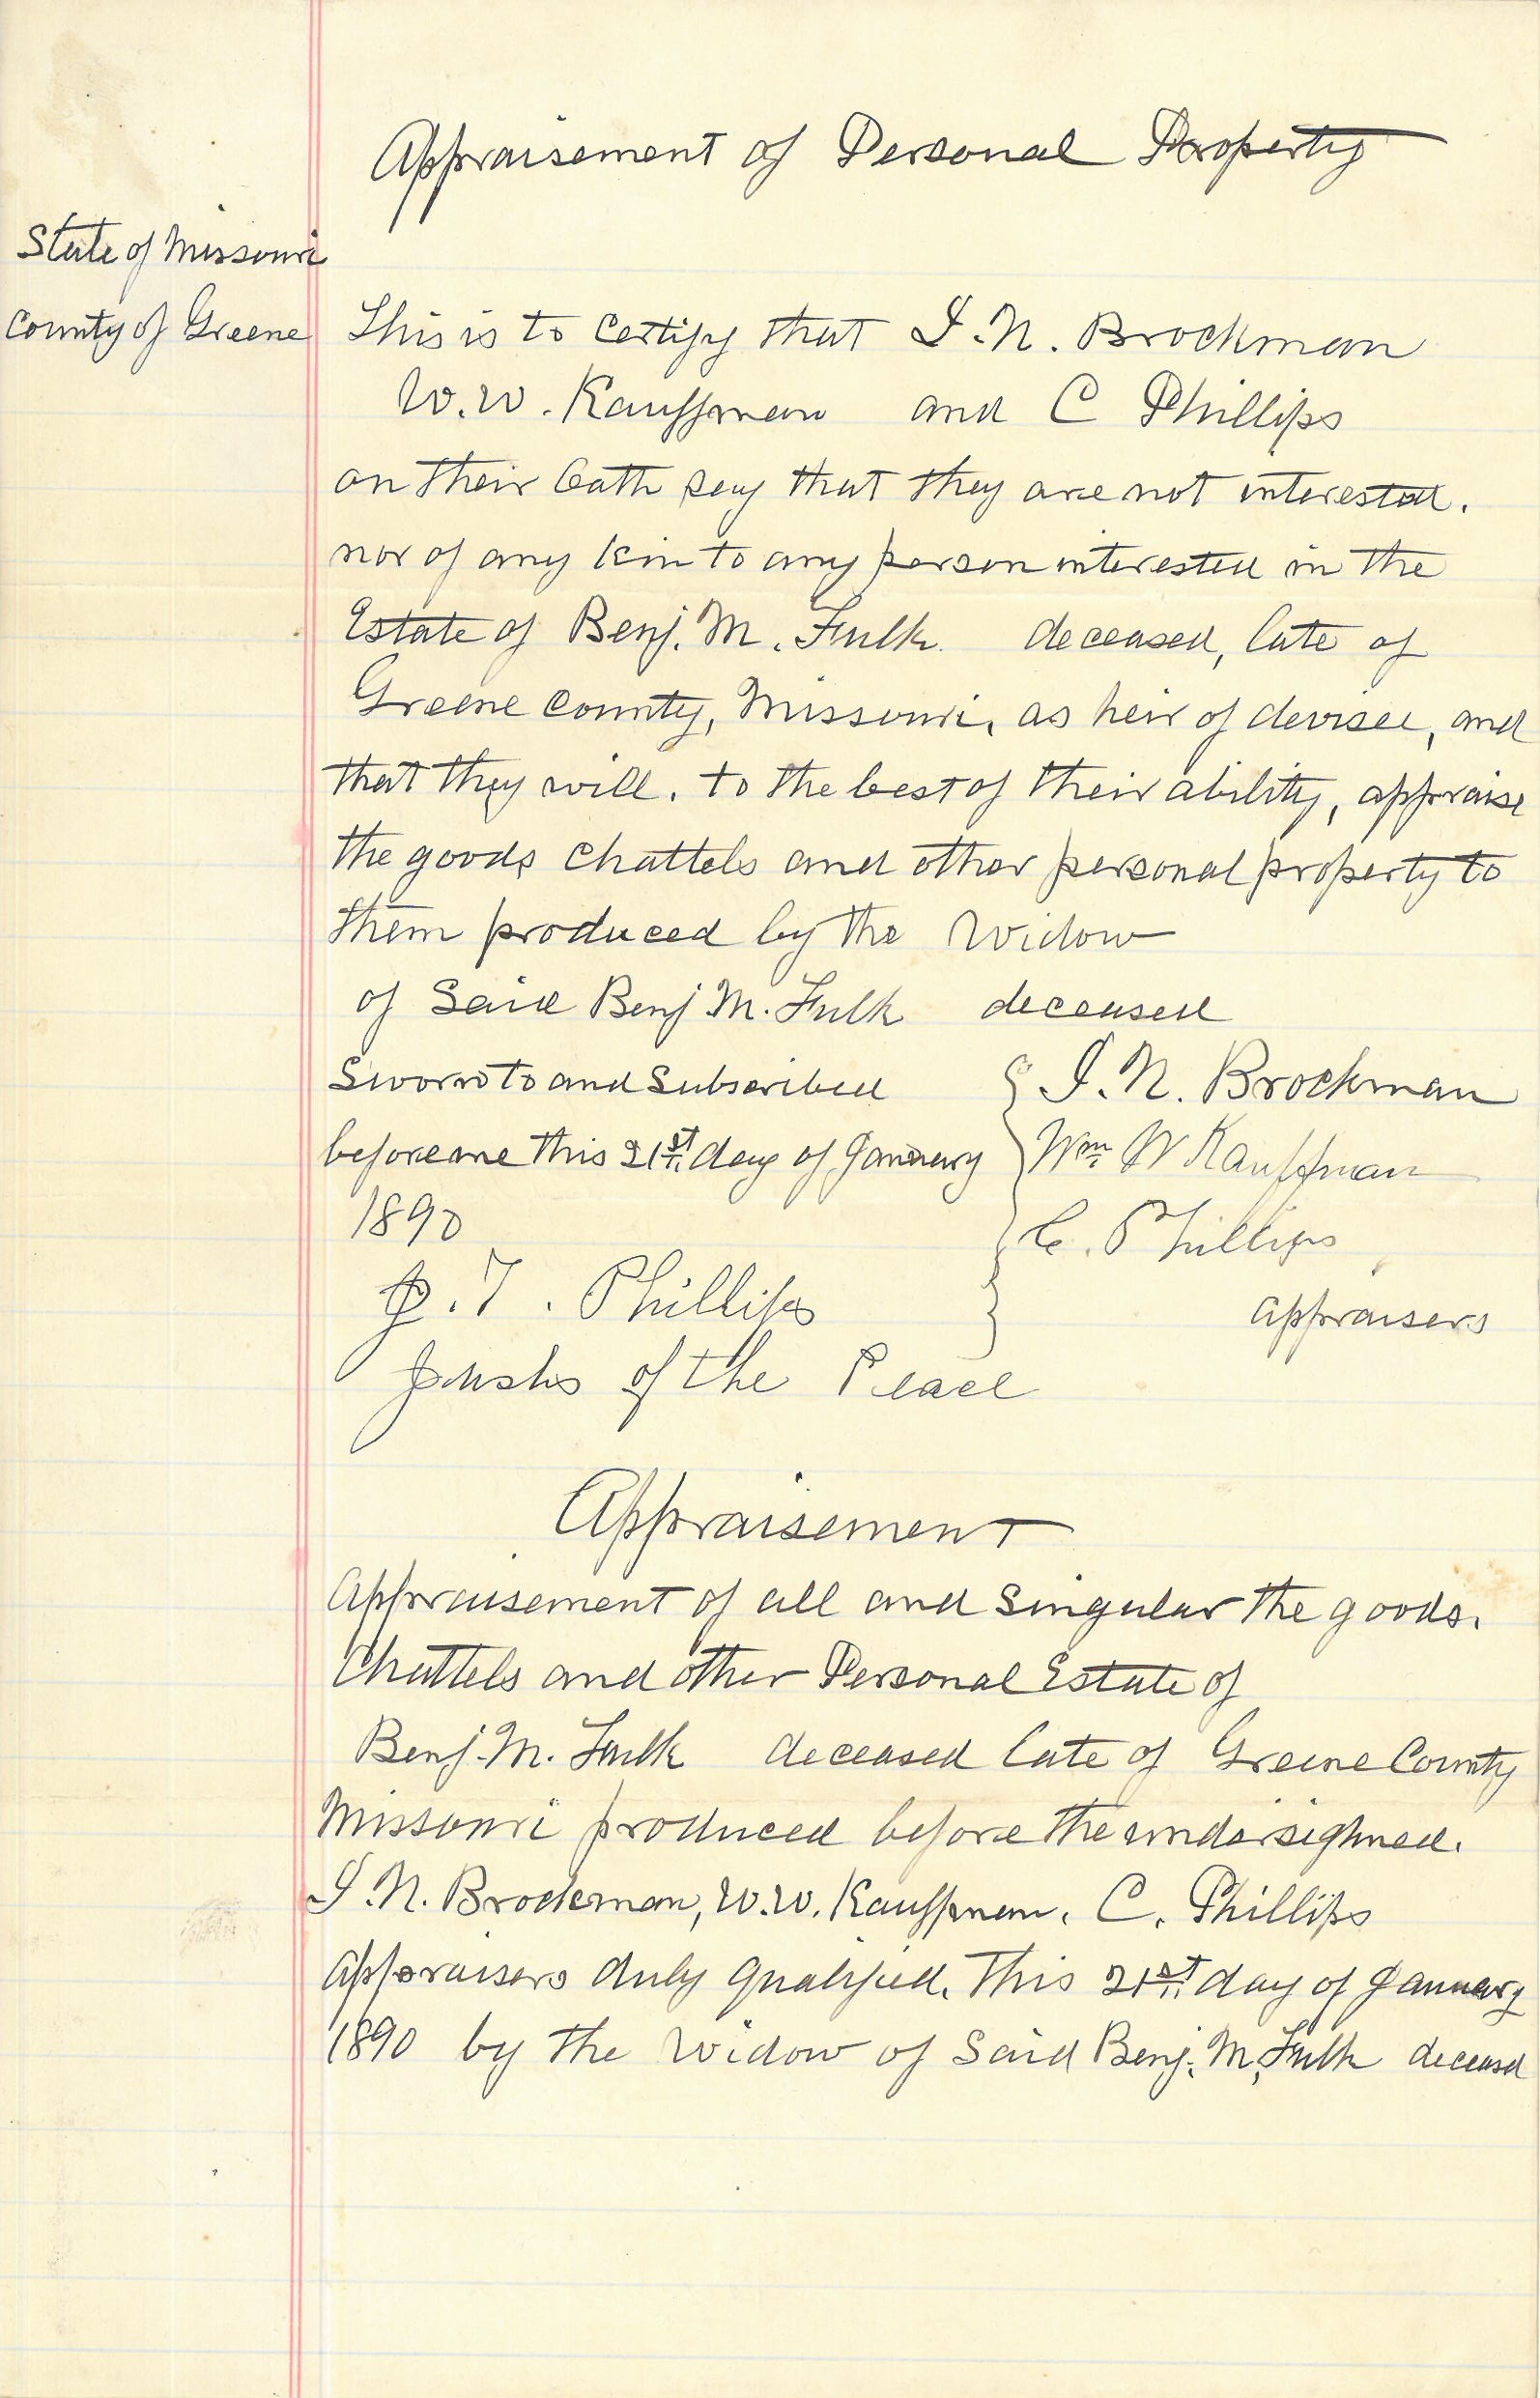 Appraisement of Personal Property
State of Missouri
County of Greene
This is to certify that I. N. Brockman
W. W. Kauffman and C Phillips
on their Oath say that they are not interested.
nor of any kin to any person interested in the
Estate of Benj. M. Fulk. deceased, late of
Greene County, Missouri, as heir of devisee, and
that they will. to the best of their ability, appraise
the goods Chattels and other personal property to
them produced by the Widow
of Said Benj M. Fulk deceased
Sworn to and Subscribed
before me this 21st day of January
1890
J. T. Phillips
of the Peace
I. N. Brockman
Wm W Kauffman
C. Phillips
appraisers
Appraisement
Appraisement of all and Singular the goods.
Chattels and other Personal Estate of
Benj. M. Fulk deceased late of Greene County
Missouri produced before the undersighned.
I. N. Brockman, W. W. Kauffman. C. Phillips
Appraisers duly qualified. This 21st day of January
1890 by the Widow of Said Benj. M. Fulk deceased